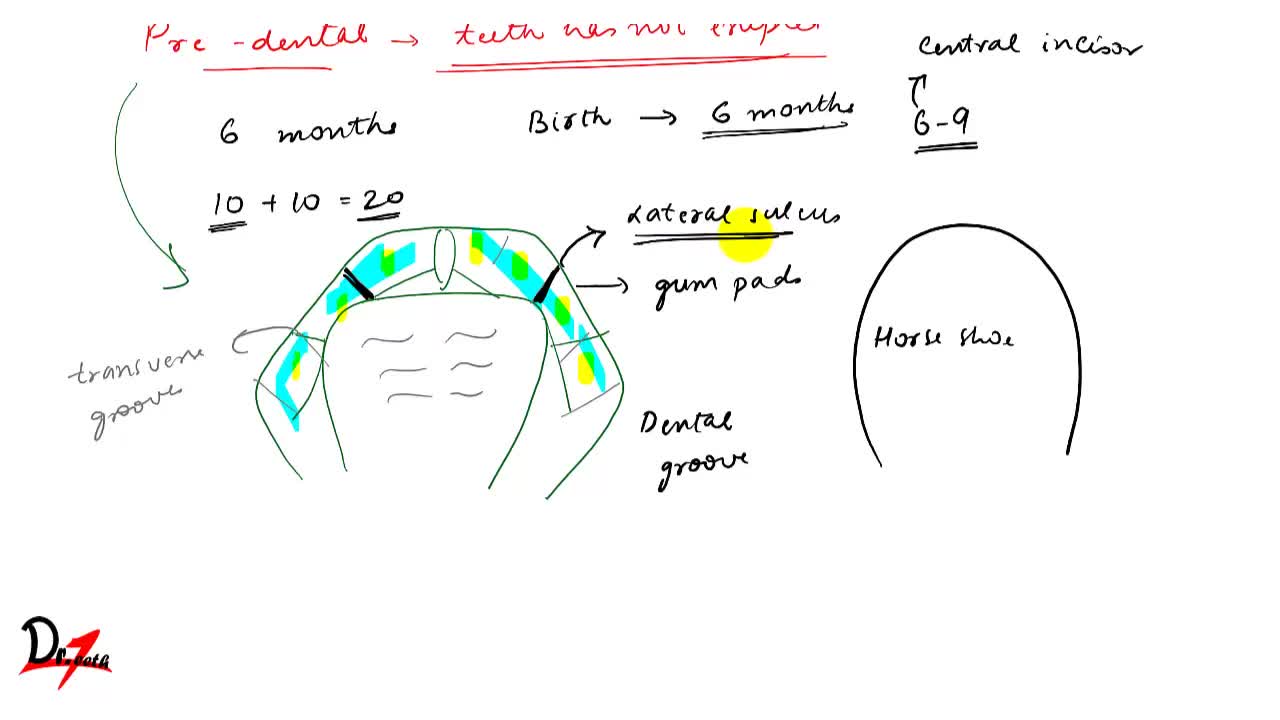 Pre-dental → teeth has not erupted
Central incisor
6 months
Birth → 6 months
6-9
10 + 10 = 20
Lateral sulcus
gum pads
Horse shoe
transverse
groove
Dental
groove
Dr.